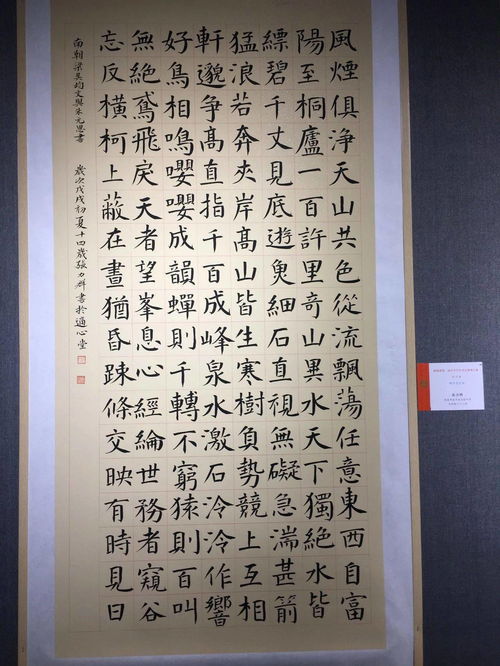 風煙俱淨天山共色從流飄蕩任意東西自富
陽至桐廬一百許里奇山異水天下獨絕水皆
縹碧千丈見底逰魚細石直視無礙急湍甚箭
猛浪若奔夾岸髙山皆生寒樹負勢競上互相
軒邈爭髙直指千百成峰泉水激石泠泠作響
好鳥相鳴嚶嚶成韻蟬則千轉不窮猿則百叫
無絕鳶飛戾天者望峯息心經綸世務者窺谷
忘反橫柯上蔽在晝猶昏踈條交映有時見日
南朝梁吳均文與朱元思書 歲次戊戌初夏十四歲張力群書於通心堂